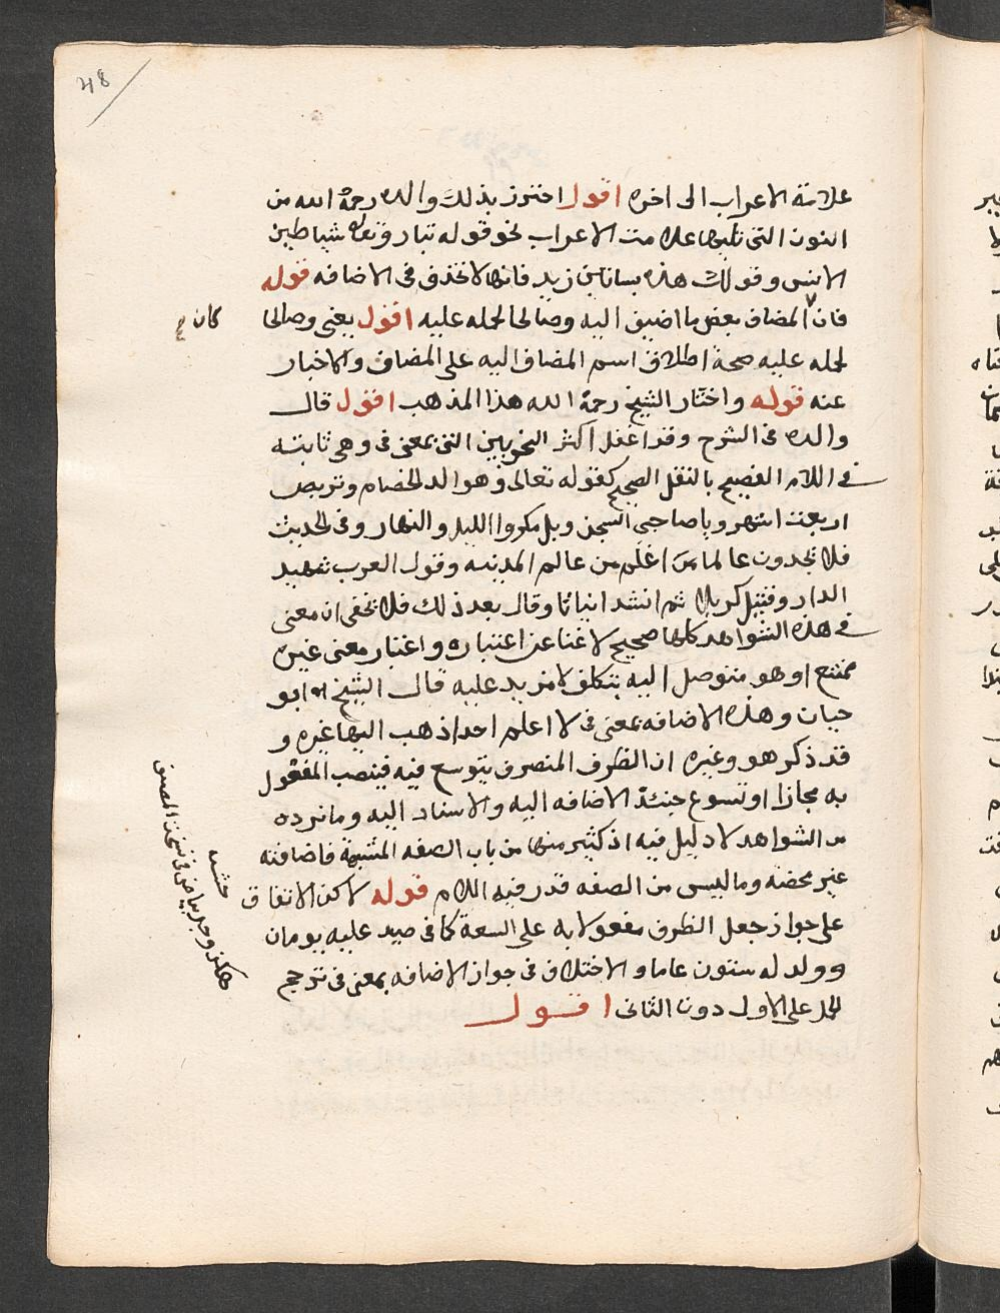 48
علامة الاعراب الى اخره اقول احترز بذلك والده رحمه الله من
النون التى تليها علامت الاعراب نحو قوله تبارك وتعالى شياطين
الانس وقولك هذه بساتين زيد فانها لا تحذف فى الاضافه قوله
فان المضاف بعض ما اضيف اليه وصالحا لحمله عليه اقول يعنى وصالحا
كان
لحمله عليه صحة اطلاق اسم المضاف اليه على المضاف والاخبار
عنه قوله واختار الشيخ رحمه الله هذا المذهب اقول قال
والده فى الشرح وقد اغفل اكثر النحويين التى بمعنى فى وهى ثابته
فى الكلام الفصيح بالنقل الصحيح كقوله تعالى وهو الد الخصام وتربص
اربعت اشهر ويا صاحبى السجن وبل مكروا الليل والنهار وفى الحديث
فلا تجدون عالما من اعلم من عالم المدينه وقول العرب شهيد
الدار وقتيل كربلا ثم انشد ابياتا وقال بعد ذلك فلا تخفى ان معنى
فى هذه الشواهد كلها صحيح لا غنا عن اعتباره واعتبار معنى غيره
ممتنع او هو متوصل اليه بتكلف لا مزيد عليه قال الشيخ ابو
حيان وهذه الاضافه بمعنى فى لا اعلم احدا ذهب اليها غيره و
قد ذكر هو وغيره ان الظرف المتصرف يتوسع فيه فينصب المفعول
به مجازا او تسوع حينئذ الاضافه اليه والاسناد اليه وما نرده
من الشواهد لا دليل فيه اذ كثير منها من باب الصفه المشبهة فاضافته
غير محضه وما ليس من الصفه قدر فيه اللام قوله لاكن الاتفاق
على جواز جعل الظرف مفعولا به على السعة كما فى صيد عليه يومان
وولد له ستون عاما والاختلاف فى جواز الاضافه بمعنى فى ترجح
الحمل على الاول دون الثانى اقول
هكذا وجد بياض فى نسخة المصنف